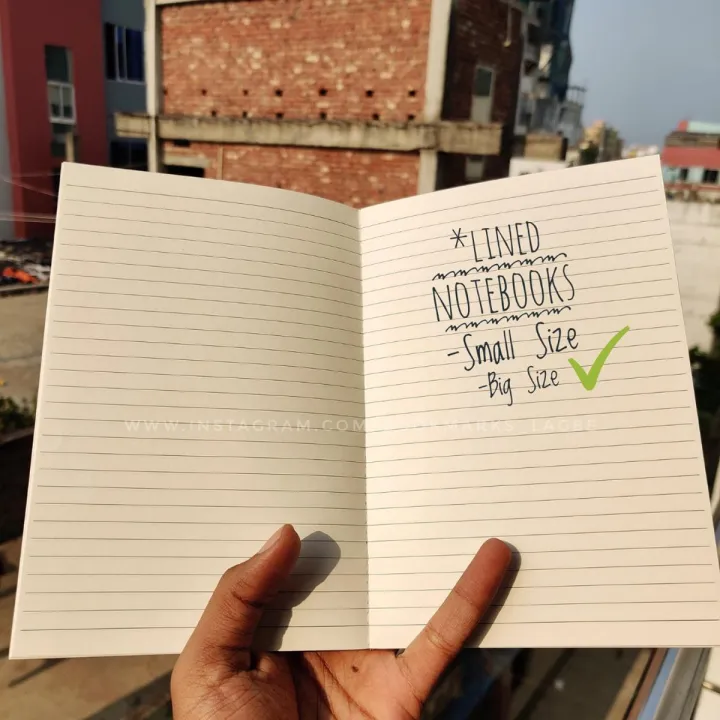 *LINED
NOTEBOOKS
-Small Size
-Big Size
WWW.INSTAGRAM.COM